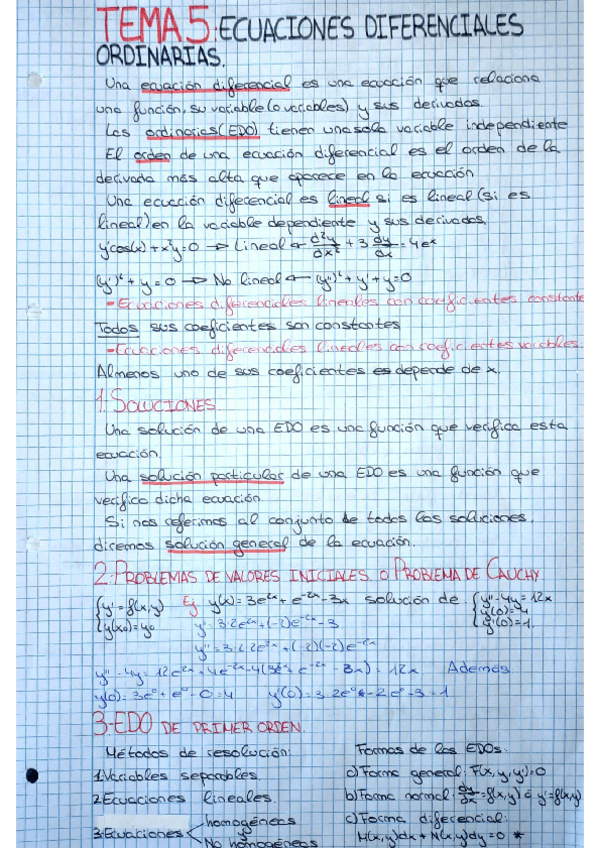 TEMA 5: ECUACIONES DIFERENCIALES
ORDINARIAS.
Una ecuación diferencial es una ecuación que relaciona
una función, su variable (o variables) y sus derivadas.
Las ordinarias (EDO) tienen una sola variable independiente
El orden de una ecuación diferencial es el orden de la
derivada más alta que aparece en la ecuación
Una ecuación diferencial es lineal si es lineal (si es
lineal) en la variable dependiente y sus derivadas.
y'cos(x) + x²y=0 → Lineal ← d²y/dx² + 3 dy/dx = 4eˣ
(y')² + y = 0 → No lineal ← (y'')² + y' + y = 0
- Ecuaciones diferenciales lineales con coeficientes constante
Todos sus coeficientes son constantes
- Ecuaciones diferenciales lineales con coeficientes variables.
Almenos uno de sus coeficientes es depende de x.
1. SOLUCIONES
Una solución de una EDO es una función que verifica esta
ecuación.
Una solución particular de una EDO es una función que
verifica dicha ecuación
Si nos referimos al conjunto de todas las soluciones,
diremos solución general de la ecuación.
2. PROBLEMAS DE VALORES INICIALES O PROBLEMA DE CAUCHY
{y' = f(x,y) Ej y(x) = 3e²ˣ + e⁻²ˣ - 3x solución de {y'' - 4y = 12x
y(x0) = y0 y' = 3·2e²ˣ + (-2)e⁻²ˣ - 3 y(0) = 4
y'' = 3·2·2e²ˣ + (-2)(-2)e⁻²ˣ y'(0) = 1.
y'' - 4y = 12e²ˣ + 4e⁻²ˣ - 4(3e²ˣ + e⁻²ˣ - 3x) = 12x Además
y(0) = 3e⁰ + e⁰ - 0 = 4 y'(0) = 3·2e⁰ - 2e⁰ - 3 = 1
3. EDO DE PRIMER ORDEN.
Métodos de resolución: Formas de las EDOs:
1. Variables separables. a) Forma general: F(x, y, y') = 0
2. Ecuaciones lineales. b) Forma normal: dy/dx = f(x,y) ó y' = f(x,y)
homogéneas c) Forma diferencial:
3. Ecuaciones < No homogéneas M(x,y)dx + N(x,y)dy = 0 *